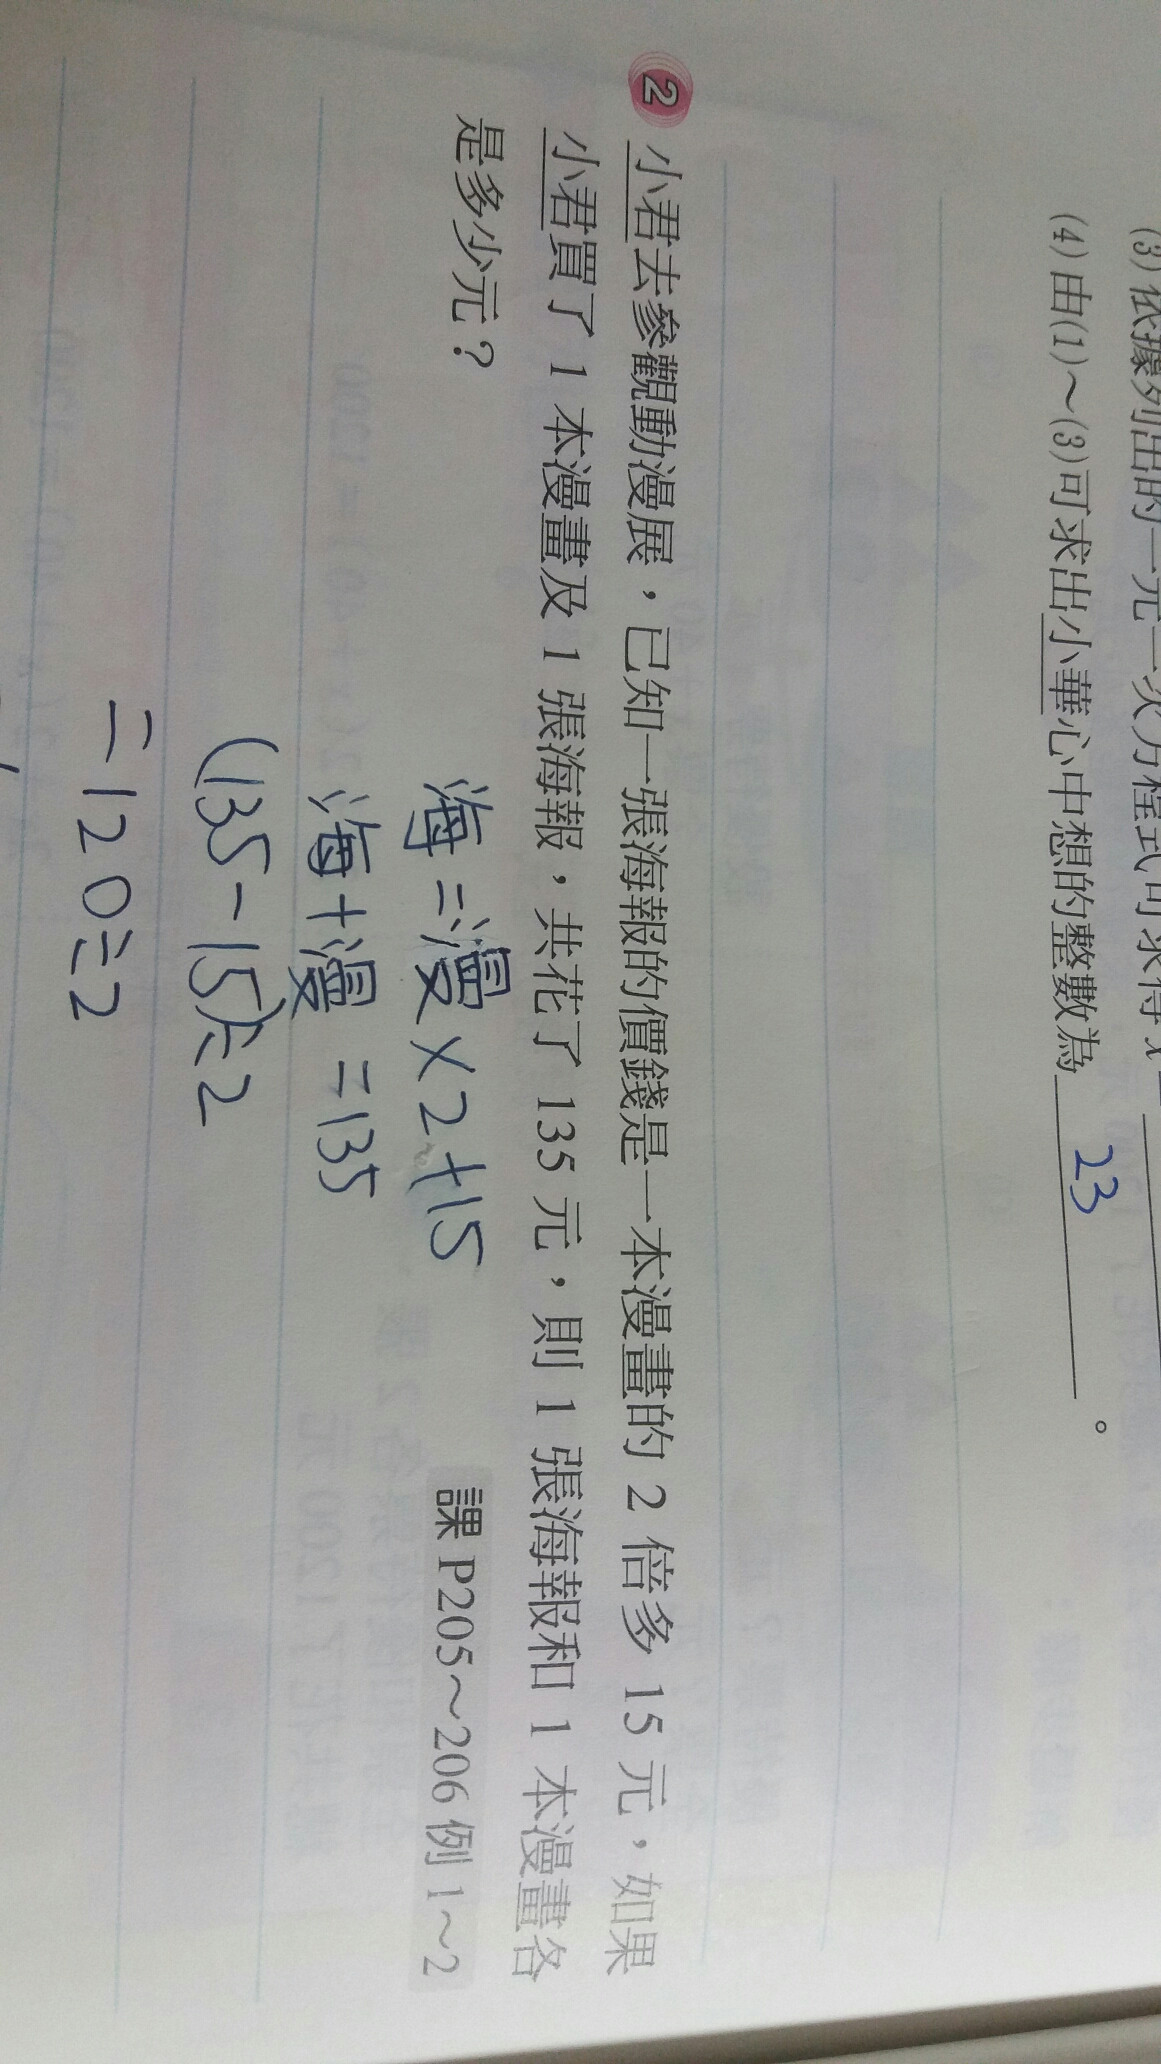 (3)依據列出的一元一次方程式可求得 x
(4)由(1)～(3)可求出小華心中想的整數為 23 。
2 小君去參觀動漫展，已知一張海報的價錢是一本漫畫的 2 倍多 15 元，如果
小君買了 1 本漫畫及 1 張海報，共花了 135 元，則 1 張海報和 1 本漫畫各
是多少元？
課 P205～206 例 1～2
海=漫×2+15
海+漫=135
(135-15)÷2
=120÷2